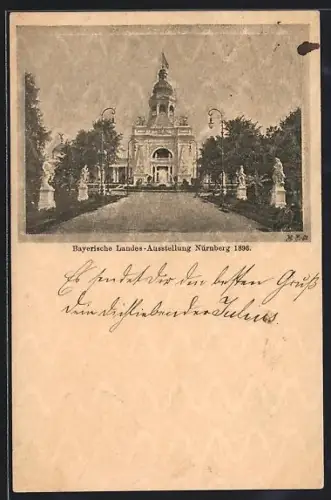 Bayerische Landes-Ausstellung Nürnberg 1896.
Es sendet Dir den besten Gruß
Dein Dichliebender Julius.